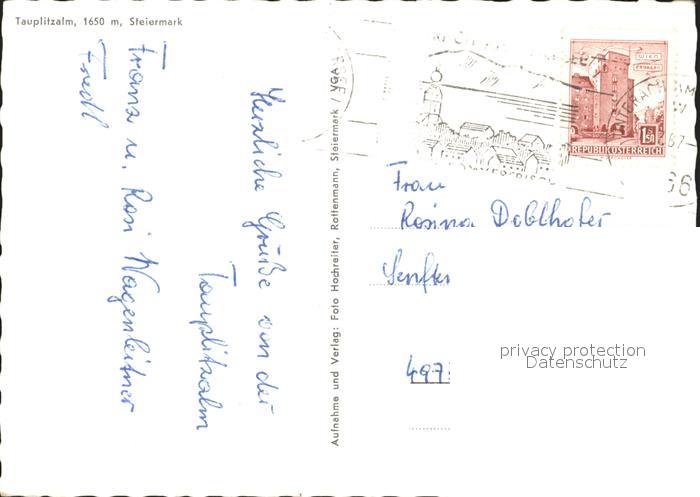 Tauplitzalm, 1650 m, Steiermark
Herzliche Grüße von der
Tauplitzalm
Franz u. Rosi Wagenleitner
Friedl
Aufnahme und Verlag: Foto Hochreiter, Rottenmann, Steiermark / VGA
WIEN
ERDBERG
1.50
REPUBLIK ÖSTERREICH
66
Frau
Rosina Doblhofer
497
privacy protection
Datenschutz